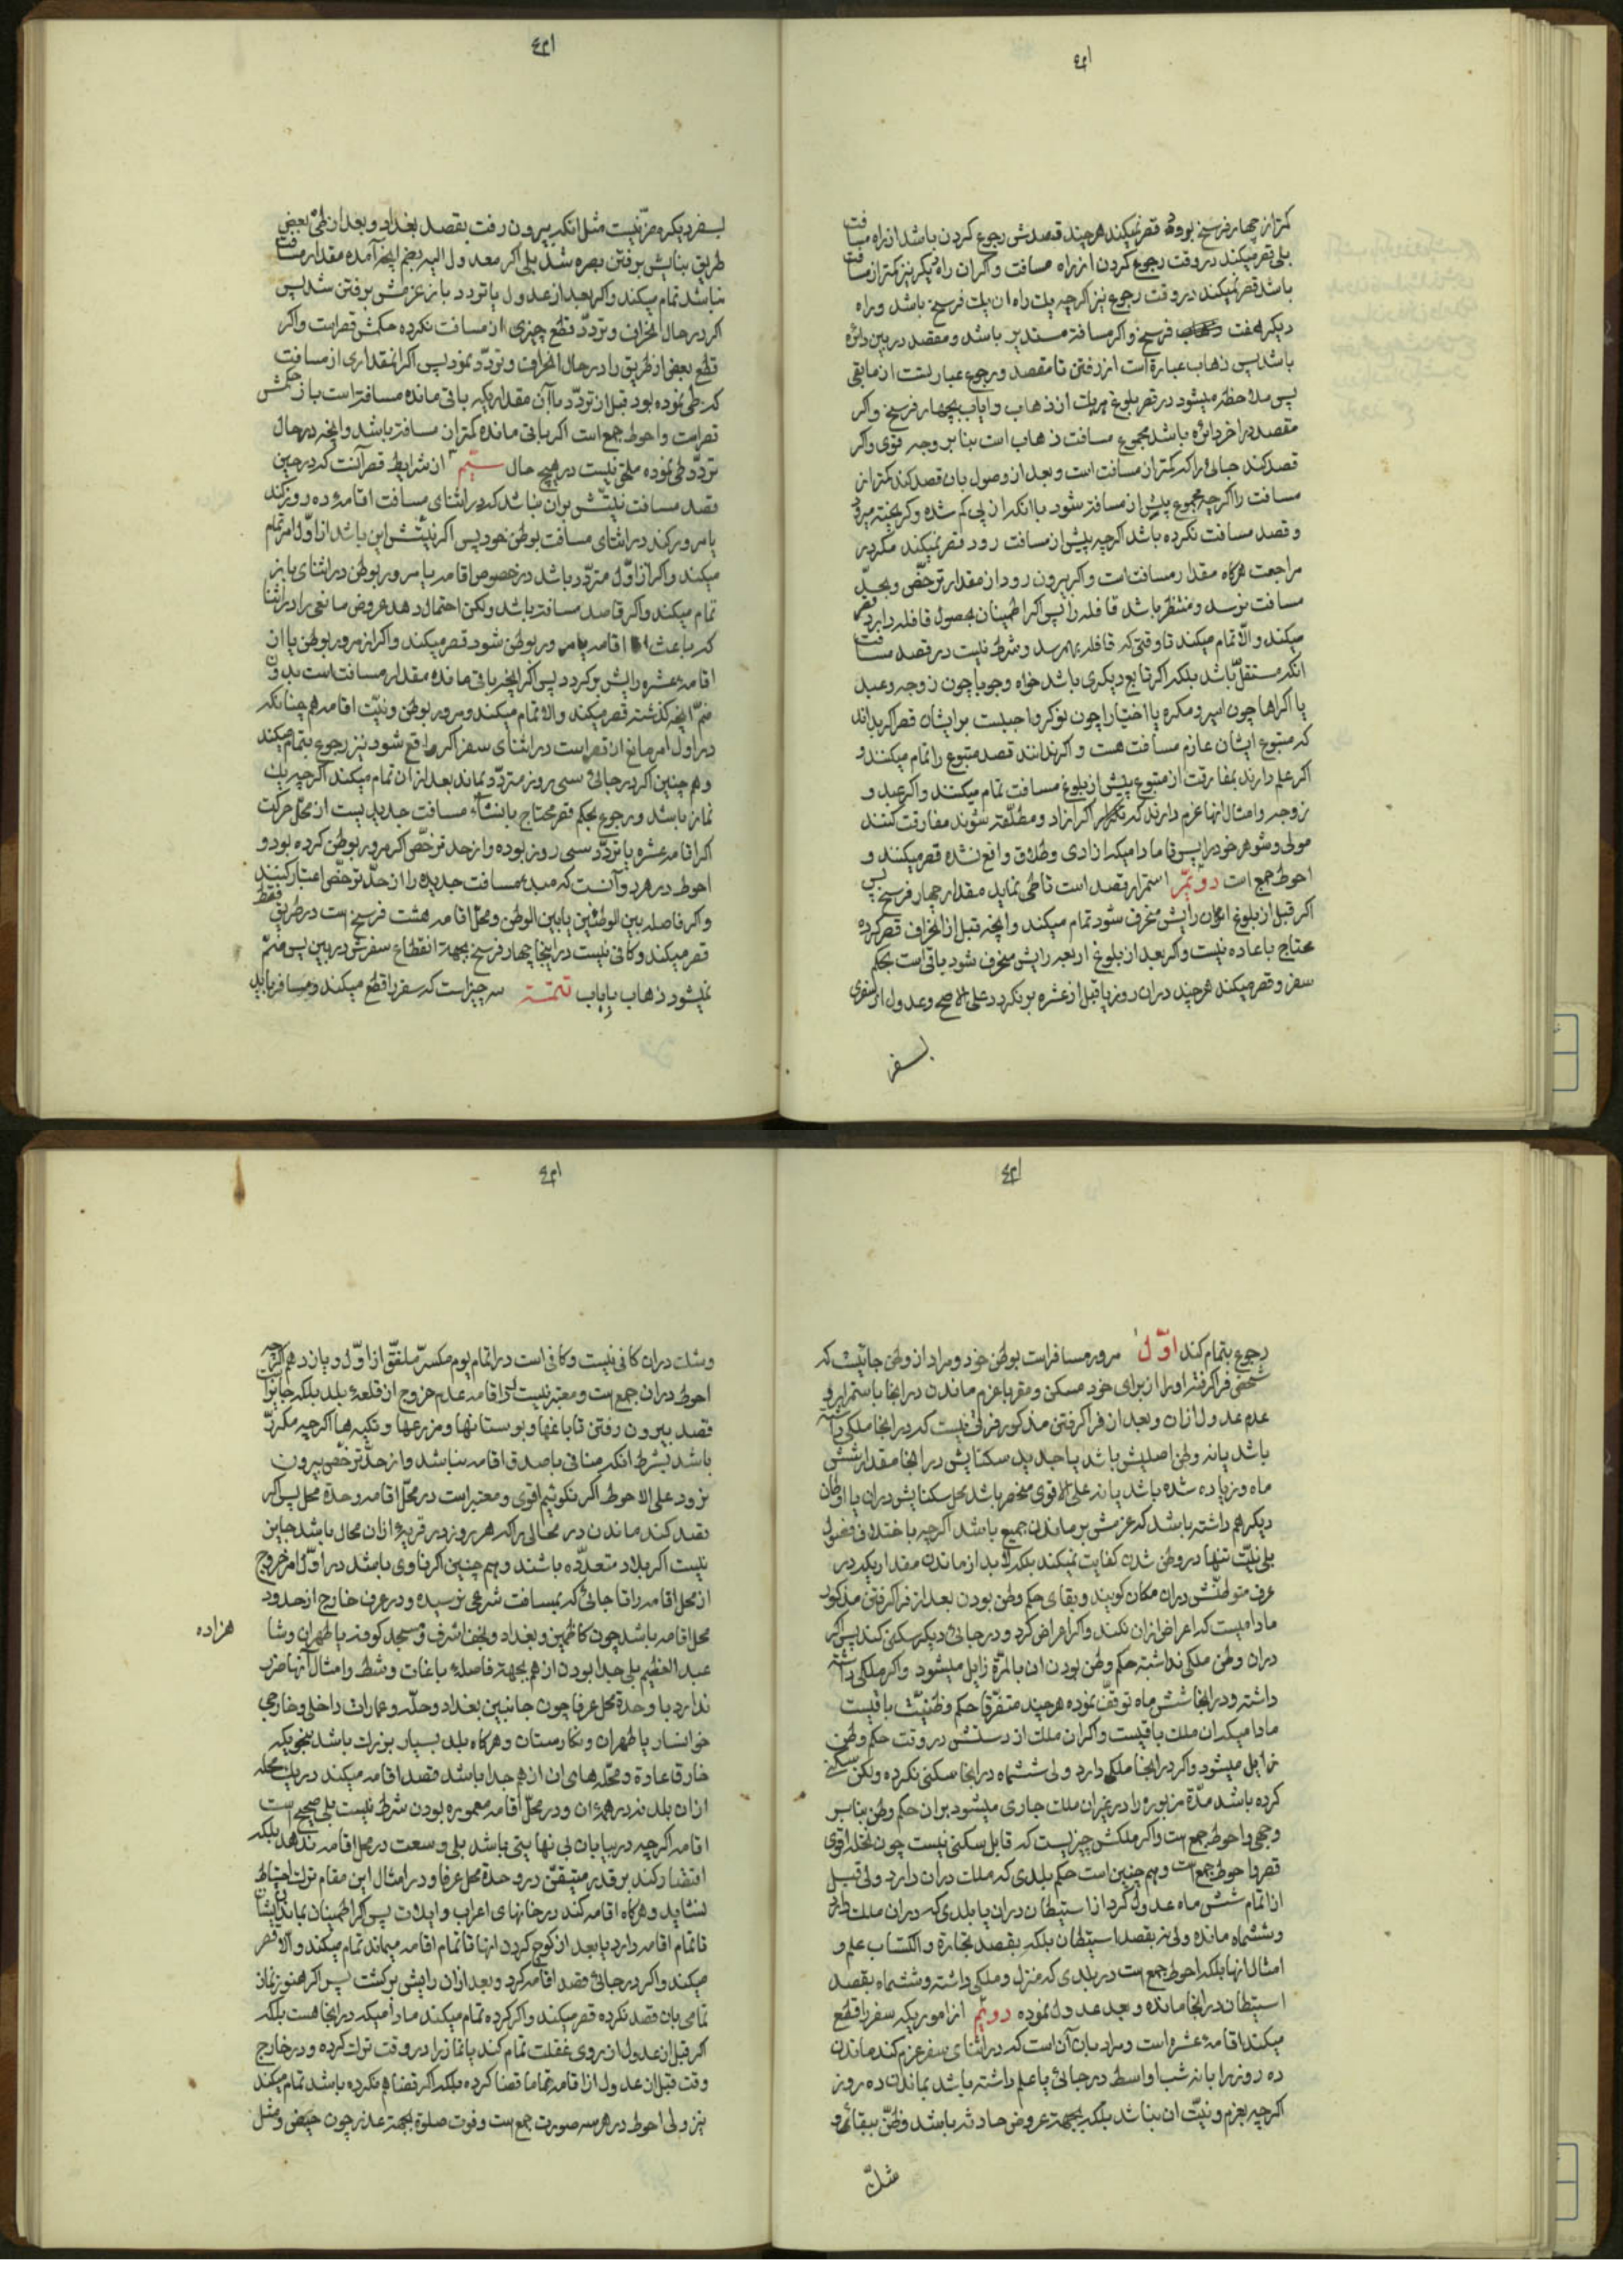 کمتر از چهار فرسخ بوده قصر نمیکند هر چند قصدش رجوع کردن باشد از راه مسافت
بلی قصر میکند در وقت رجوع کردن از راه مسافت و اگر ان راه دیگر نیز کمتر از مسافت
باشد قصر نمیکند در وقت رجوع نیز اگر چه یک راه ان یک فرسخ باشد و راه
دیگر هفت فرسخ و اگر مسافة مستدیر باشد و مقصد در بین دائره
باشد پس ذهاب عبارة است از رفتن تا مقصد و رجوع عبارتست از مابقی
پس ملاحظه میشود در قصر بلوغ هریک از ذهاب و ایاب بچهار فرسخ و اگر
مقصد در اخر دائره باشد مجموع مسافت ذهاب است بنا بر وجه قوی و اگر
قصد کند جائی را که کمتر از مسافت است و بعد از وصول بان قصد کند کمتر از
مسافت را اگر چه مجموع بیش از مسافة شود یا انکه از پی کم شده و گریخته میرود
و قصد مسافت نکرده باشد اگر چه بیش از مسافت رود قصر نمیکند مگر در
مراجعت هرگاه مقدار مسافت است و اگر بیرون رود از مقدار ترخّص و بحدّ
مسافت نرسد و منتظر باشد قافله را پس اگر اطمینان بحصول قافله دارد قصر
میکند والّا تمام میکند تا وقتی که قافله بهم رسد و شرط نیست در قصد مسافت
انکه مستقلّ باشد بلکه اگر تابع دیگری باشد خواه وجوبا چون زوجه و عبد
یا اکراها چون اسیر و مکره یا اختیارا چون نوکر واجبست بر ایشان قصر اگر بدانند
که متبوع ایشان عازم مسافت هست و اگر ندانند قصد متبوع را تمام میکنند و
اگر علم دارند بمفارقت از متبوع پیش از بلوغ مسافت تمام میکنند و اگر عبد و
زوجه و امثال انها عزم دارند که اگر ازاد و مطلّقه شوند مفارقت کنند
مولی و شوهر خود را پس تا مادامیکه ازادی و طلاق واقع نشده قصر میکنند و
احوط جمع است دویّم استمرار قصد است تا طی نماید مقدار چهار فرسخ پس
اگر قبل از بلوغ ان رایش منحرف شود تمام میکند و انچه قبل از انحراف قصر کرده
محتاج باعاده نیست و اگر بعد از بلوغ اربعه رایش منحرف شود باقی است بحکم
سفر و قصر میکند هر چند در ان روز یا قبل از عشره برنگردد علی الاصح و عدول از سفری
بسفر
بسفر دیگر مضرّ نیست مثل انکه بیرون رفت بقصد بغداد و بعد از طیّ بعض
طریق بنایش برفتن بصره شد بلی اگر معدول الیه بضم انچه آمده مقدار مسافت
نباشد تمام میکند و اگر بعد از عدول یا تردد باز عزمش برفتن شد پس
اگر در حال انحراف و تردّد قطع چیزی از مسافت نکرده حکمش قصر است و اگر
قطع بعض از طریق را در حال انحراف و تردّد نمود پس اگر انمقداری از مسافت
که طی نموده بود قبل از تردّد با آن مقداریکه باقی مانده مسافة است باز حکمش
قصر است و احوط جمع است اگر باقی مانده کمتر از مسافة باشد و انچه در حال
تردّد طی نموده ملحق نیست در هیچ حال سیّم از شرایط قصر آنست که در حین
قصد مسافت نیتّش بر ان نباشد که در اثنای مسافت اقامهٔ ده روز کند
یا مرور کند در اثنای مسافت بوطن خود پس اگر نیتّش این باشد از اوّل امر تمام
میکند و اگر از اوّل متردّد باشد در خصوص اقامه یا مرور بوطن در اثنای باز
تمام میکند و اگر قاصد مسافت باشد ولکن احتمال دهد عروض مانعی را در اثنا
که باعث اقامه یا مرور بوطن شود قصر میکند و اگر از مرور بوطن یا از
اقامهٔ عشره رایش برگردد پس اگر انچه باقی مانده مقدار مسافت است بدون
ضمّ انچه گذشته قصر میکند والا تمام میکند و مرور بوطن و نیّت اقامه همچنانکه
در اول امر مانع از قصر است در اثنای سفر اگر واقع شود نیز رجوع بتمام میکند
و همچنین اگر در جائی سی روز متردّد بماند بعد از ان تمام میکند اگر چه یک
نماز باشد و رجوع بحکم قصر محتاج بانشاء مسافت جدید یست از محلّ حرکت
اگر اقامهٔ عشره یا تردّد سی روز بوده و از حد ترخّص اگر مرور بوطن کرده بود و
احوط در هر دو آنست که مبدء مسافت جدیده را از حدّ ترخّص اعتبار کنند
و اگر فاصله بین الوطنین یا بین الوطن و محل اقامه هشت فرسخ است در طریق فقط
قصر میکند و کافی نیست در اینجا چهار فرسخ بجهة انقطاع سفرش در بین پس منضمّ
نمیشود ذهاب بایاب تتمّة سه چیز است که سفر را قطع میکند و مسافر باید
رجوع بتمام کند اوّل مرور مسافر است بوطن خود و مراد از وطن جائیست که
شخص فراگرفته او را از برای خود مسکن و مقر با عزم ماندن در انجا باستمرار و
عدم عدول از ان و بعد از فراگرفتن مذکور فرقی نیست که در انجا ملکی داشته
باشد یا نه وطن اصلیش باشد یا جدید سکنایش در انجا مقدار شش
ماه و زیاده شده باشد یا نه علی الاقوی منحصر باشد محل سکنایش در ان یا اوطان
دیگر هم داشته باشد که عزمش بر ماندن جمیع باشد اگر چه باختلاف فصول
بلی نیّت تنها در وطن شدن کفایت نمیکند بلکه لابد از ماندن مقداریکه در
عرف متوطنّش در ان مکان گویند و بقای حکم وطن بودن بعد از فراگرفتن مذکور
مادامیست که اعراض از ان نکند و اگر اعراض کرد و در جائی دیگر سکنی کند پس اگر
در ان وطن ملکی نداشته حکم وطن بودن ان بالمرّة زایل میشود و اگر ملکی داشته
داشته و در انجا شش ماه توقّف نموده هر چند متفرّقا حکم وطنیّت باقیست
مادامیکه ان ملک باقیست و اگر ان ملک از دستش در رفت حکم وطن
زایل میشود و اگر در انجا ملکی دارد ولی ششماه در انجا سکنی نکرده ولکن سکنی
کرده باشد مدّة مزبوره را در غیر ان ملک جاری میشود بر ان حکم وطن بنابر
وجهی و احوط جمع است و اگر ملکش چیزیست که قابل سکنی نیست چون نخله اقوی
قصر و احوط جمع است و همچنین است حکم بلدی که ملک در ان دارد ولی قبل
از اتمام شش ماه عدول کرد از استیطان در ان یا بلدی که در ان ملک دارد
و ششماه مانده ولی نه بقصد استیطان بلکه بقصد تجارة و اکتساب علم و
امثال انها بلکه احوط جمع است در بلدی که منزل و ملکی داشته و ششماه بقصد
استیطان در انجا مانده و بعد عدول نموده دویّم از اموریکه سفر را قطع
میکند اقامهٔ عشره است و مراد بان آن است که در اثنای سفر عزم کند ماندن
ده روز را با نه شب اواسط در جائی یا علم داشته باشد بماندن ده روز
اگر چه بعزم و نیّت ان نباشد بلکه بجهة عروض حادثه باشد و ظنّ ببقائی و
شکّ
و شک در ان کافی نیست و کافی است در اتمام یوم مکسّر ملفّق از اوّل و یازدهم اگر چه
احوط در ان جمع است و معتبر نیست در اقامه عدم خروج از قلعهٔ بلد بلکه جایز است
قصد بیرون رفتن تا باغها و بوستانها و مزرعها و تکیه ها اگر چه مکرّر
باشد بشرط انکه منافی با صدق اقامه نباشد و از حدّ ترخّص بیرون
نرود علی الاحوط اگر نگوئیم اقوی و معتبر است در محلّ اقامه وحدة محل پس اگر
قصد کند ماندن در محالی را که هر روز در قریهٔ از ان محال باشد جایز
نیست اگر بلاد متعدّده باشند و همچنین اگر ناوی باشد در اوّل امر خروج
از محل اقامه را تا جائی که بمسافت شرعی نرسیده و در عرف خارج از حدود
محل اقامه باشد چون کاظمین و بغداد و نجف اشرف و مسجد کوفه یا طهران و شا
هزاده
عبد العظیم بلی جدا بودن از هم بجهة فاصلهٔ باغات و شط و امثال آنها ضرر
ندارد با وحدة محل عرفا چون جانبین بغداد و حلّه و عمارات داخلی و خارجی
خوانسار یا طهران و نگارستان و هرگاه بلد بسیار بزرک باشد بنحویکه
خارق عادة و محلّه های ان از هم جدا باشد قصد اقامه میکند در یک محله
از ان بلد نه در همهٔ ان و در محلّ اقامه معموره بودن شرط نیست بلی صحیح است
اقامه اگر چه در بیابان بی نهایتی باشد بلی وسعت در محل اقامه ندهد بلکه
اقتصار کند بر قدر متیقّن در وحدة محل عرفا و در امثال این مقام ترک احتیاط
نشاید و هرگاه اقامه کند در خانهای اعراب و ایلات پس اگر اطمینان بماندن ایشان
تا تمام اقامه دارد یا بعد از کوچ کردن انها تا تمام اقامه میماند تمام میکند والّا قصر
میکند و اگر در جائی قصد اقامه کرد و بعد از ان رایش برگشت پس اگر هنوز نماز
تمامی بان قصد نکرده قصر میکند و اگر کرده تمام میکند مادامیکه در انجا هست بلکه
اگر قبل از عدول از روی غفلت تمام کند یا نماز را در وقت ترک کرده و در خارج
وقت قبل از عدول از اقامه تماما قضا کرده بلکه اگر قضا هم نکرده باشد تمام میکند
نیز ولی احوط در هر سه صورت جمع است و فوت صلوة بجهة عذر چون حیض و مثل